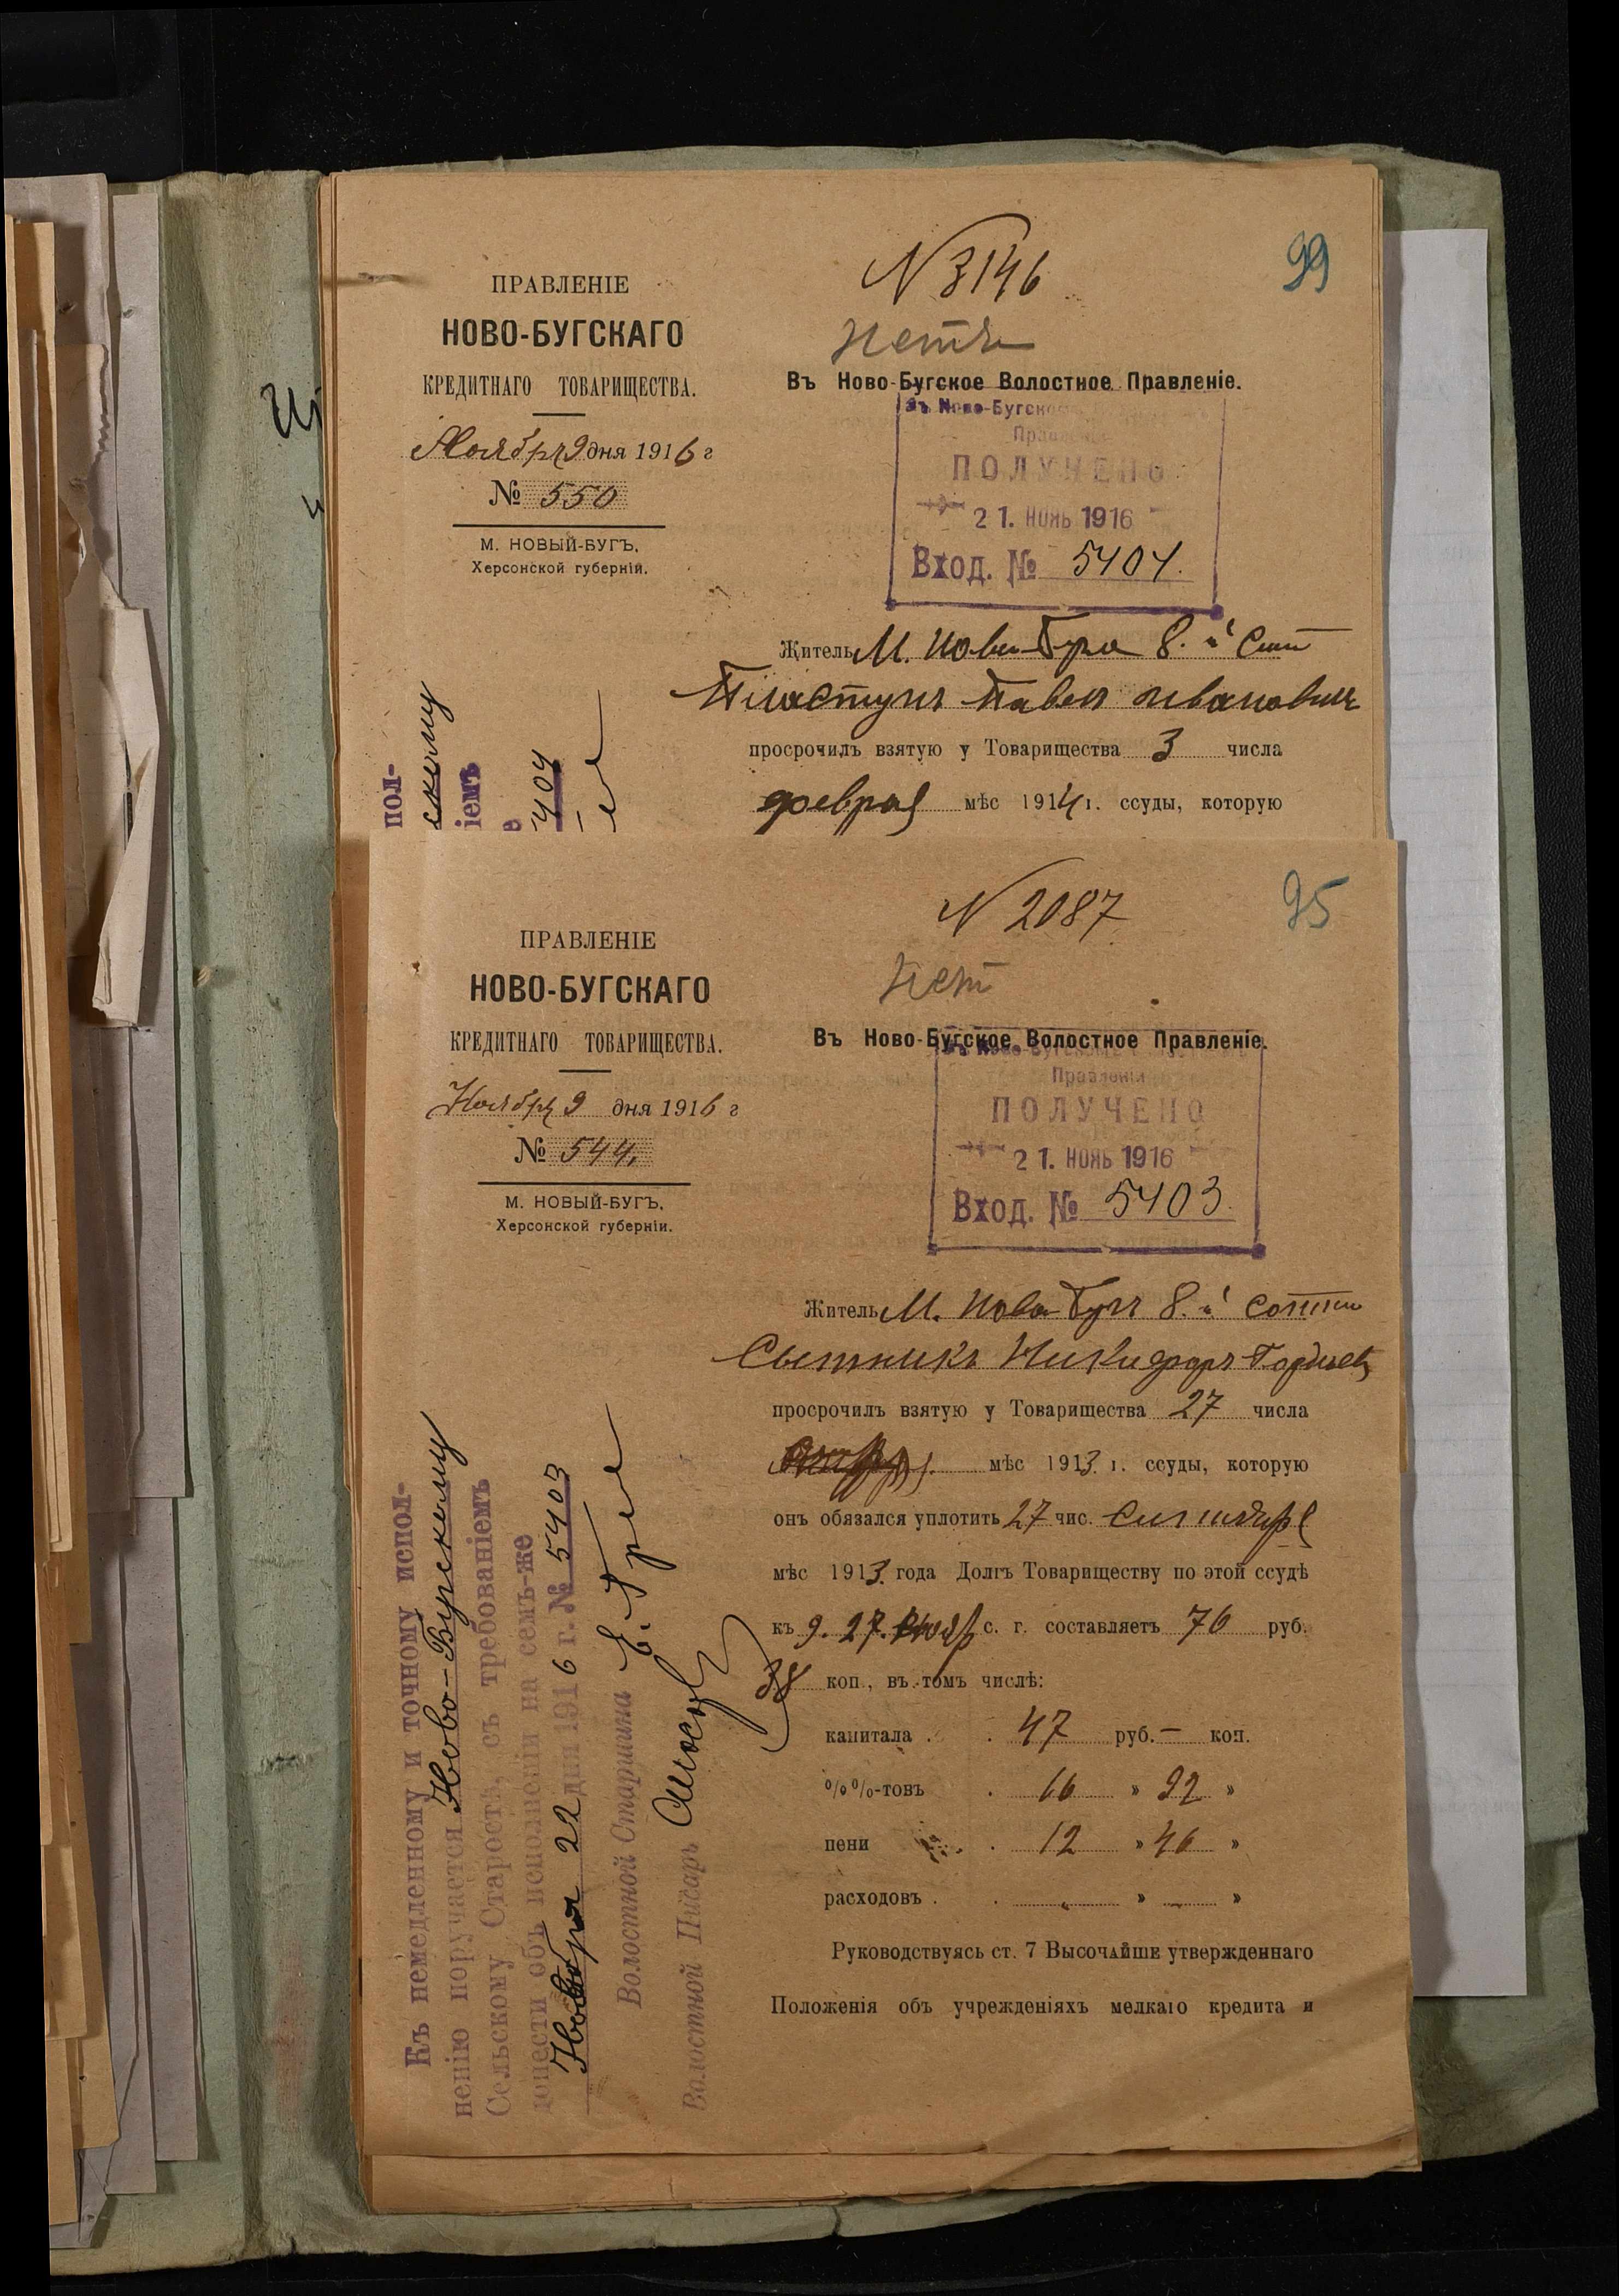 N 3146
99
Нетъ
ПРАВЛЕНІЕ
НОВО-БУГСКАГО
КРЕДИТНАГО ТОВАРИЩЕСТВА.
Ноября 9 дня 1916 г
№ 550
М. НОВЫЙ-БУГЪ,
Херсонской губерніи.
Въ Ново-Бугское Волостное Правленіе.
Въ Ново-Бугско
Правленіе
ПОЛУЧЕНО
21. НОЯБ 1916
Вход. № 5404.
Житель М. Новы Буга 8.й
Пластунъ Павелъ Ивановичъ
просрочилъ взятую у Товарищества 3 числа
февраля мѣс 1914 г. ссуды, которую
пол-
скому
іемъ
е
404
N 2087
95
Нет
ПРАВЛЕНІЕ
НОВО-БУГСКАГО
КРЕДИТНАГО ТОВАРИЩЕСТВА.
Ноября 9 дня 1916 г
№ 544.
М. НОВЫЙ-БУГЪ,
Херсонской губерніи.
Въ Ново-Бугское Волостное Правленіе.
Правленіи
ПОЛУЧЕНО
21. НОЯБ 1916
Вход. № 5403.
Житель М. Новы Бугъ 8.й сотни
Сытникъ Никифоръ Гордѣев
просрочилъ взятую у Товарищества 27 числа
мѣс 1913 г. ссуды, которую
онъ обязался уплотить 27 чис. Сентября
мѣс 1913 года Долгъ Товариществу по этой ссудѣ
къ 9. 27. Нояб с. г. составляетъ 76 руб.
38 коп., въ томъ числѣ:
капитала . . 47 руб. — коп.
%%-товъ . 16 » 92 »
пени . . 12 » 46 »
расходовъ . . » »
Руководствуясь ст. 7 ВЫСОЧАЙШЕ утвержденнаго
Положенія объ учрежденіяхъ мелкаго кредита и
Къ немедленному и точному испол-
ненію поручается Ново-Бугскому
Сельскому Старостѣ, съ требованіемъ
донести объ исполненіи на семъ-же
Ноября 22 дня 1916 г. № 5403
Волостной Старшина Е.
Волостной Писарь